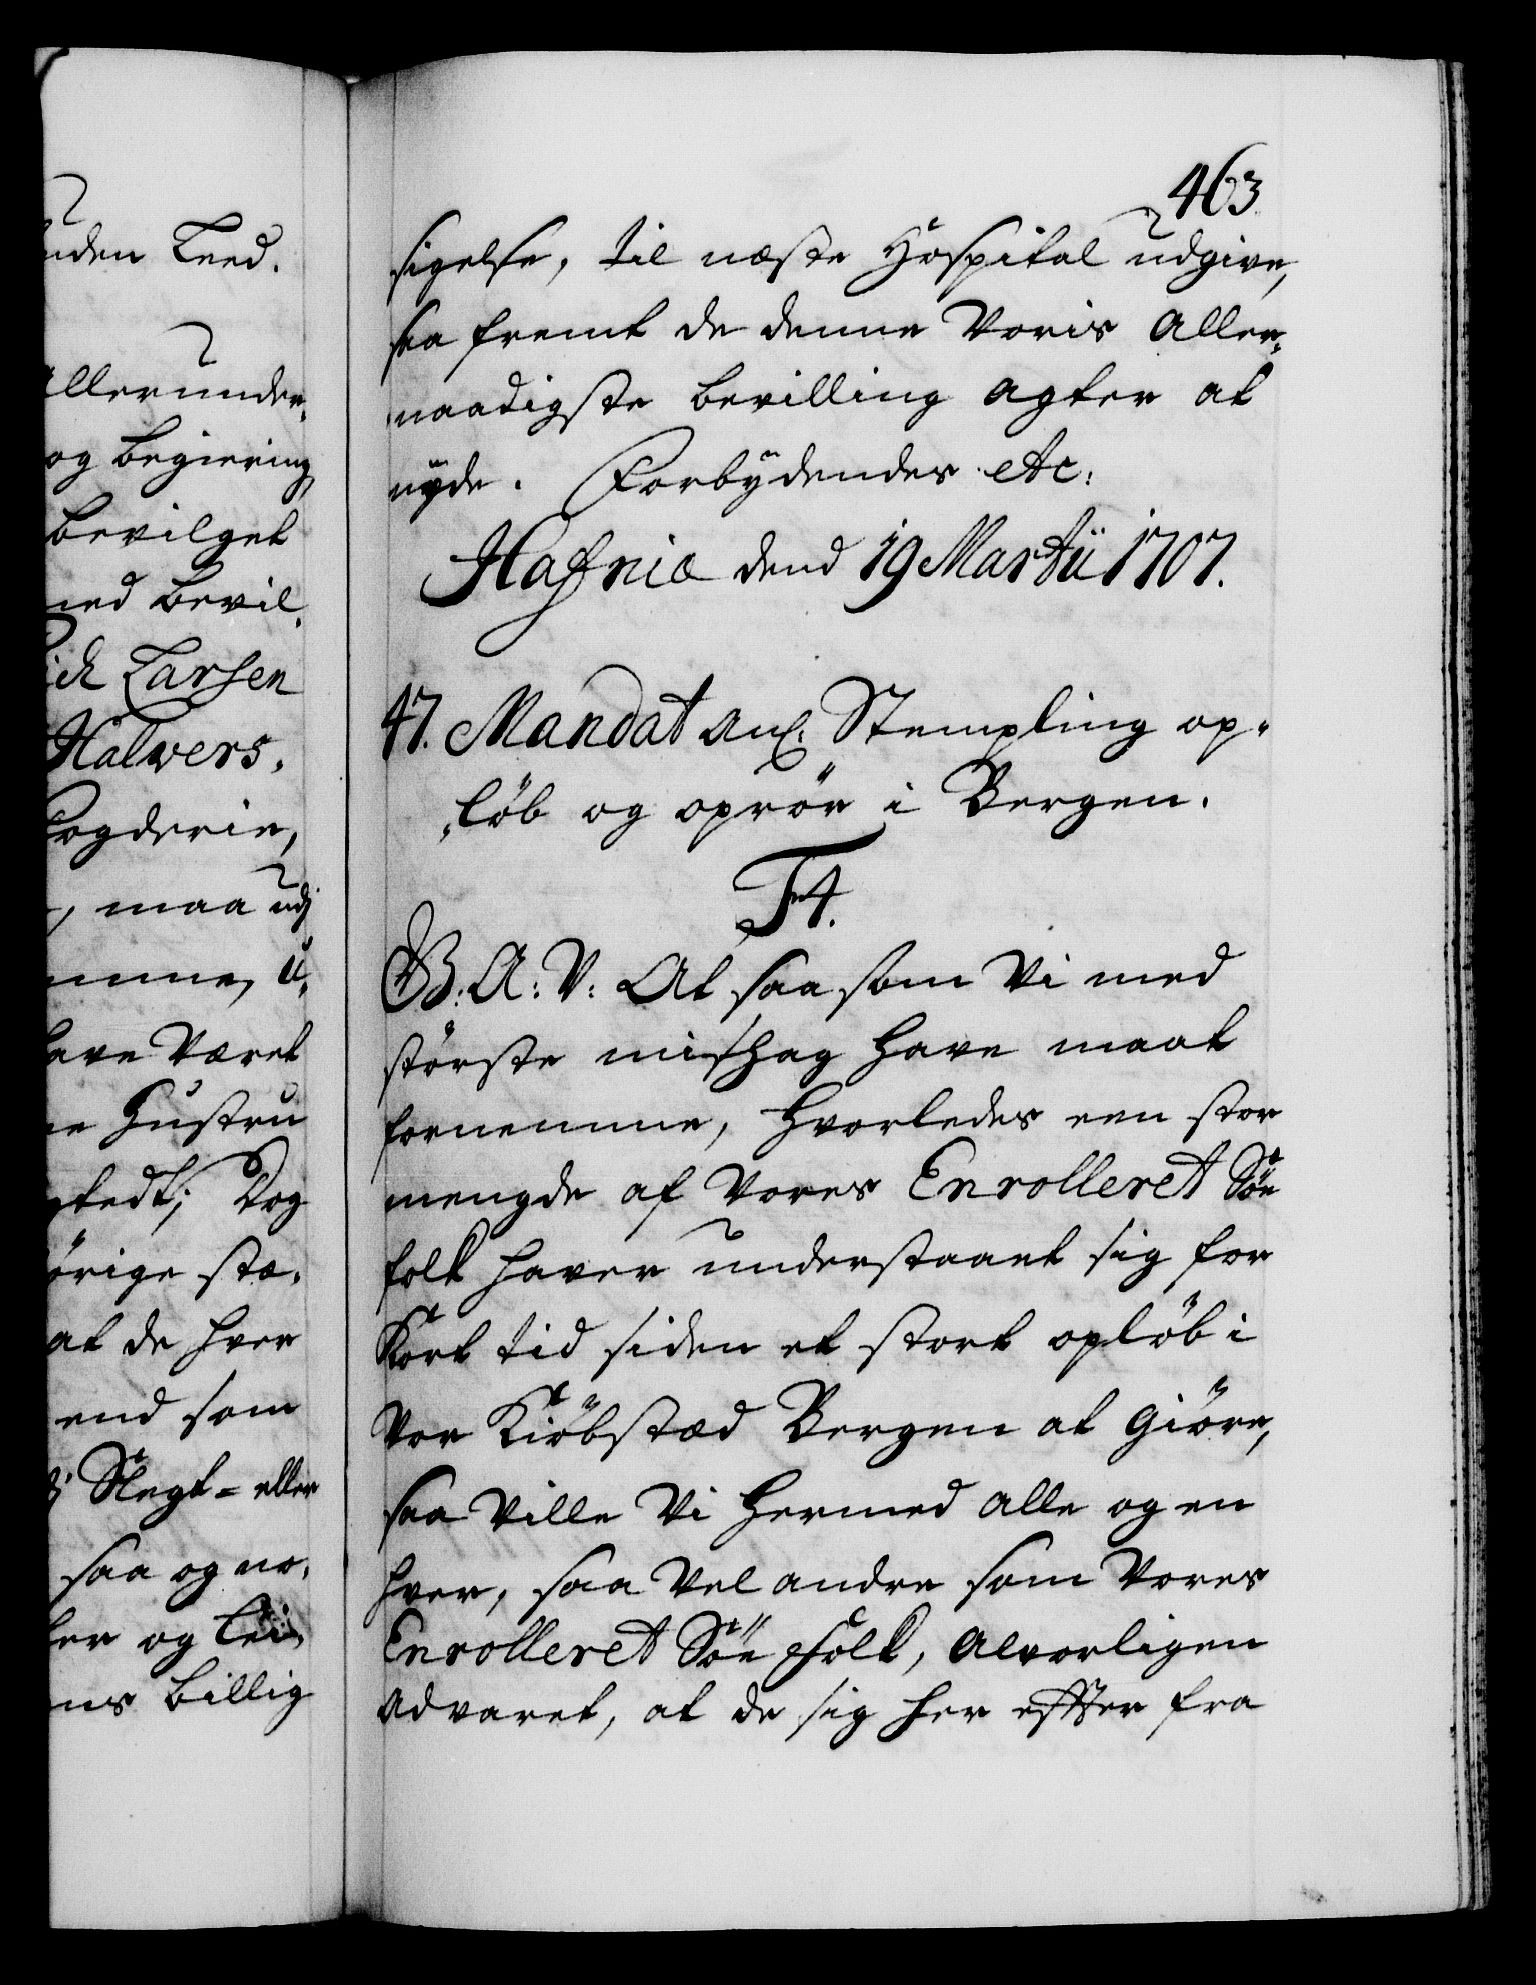 nden Leed.
Allerunder-
og begiering
bevilget
med bevil-
ich Larsen
Halvers-
Fogderie,
, maa udj
mme, u-
have været
e Hustru
gtedt; Dog
hörige stæ-
at de hver
end som
j Slegt= eller
saa og no-
er og Lei-
ns billig
463
sigelse, til næste Hospital udgive,
saa fremt de denne Voris Aller-
naadigste bevilling agter at
nyde. Forbydendes etc:
Hafniæ dend 19 Martii 1707.
47. Mandat anl. Stempling op-
löb og oprör i Bergen.
F4.
G: A: V: At saasom Vi med
störste mishag have maat
fornemme, hvorledes een stor
mengde af Vores Enrolleret Söe
folk haver understaaet sig for
kort tid siden et stort oplöb i
Vor Kiöbstæd Bergen at giöre,
saa Ville Vi hermed alle og en
hver, saa vel andre som Vores
Enrolleret Söe Folk, Alvorligen
advaret, at de sig her effter fra